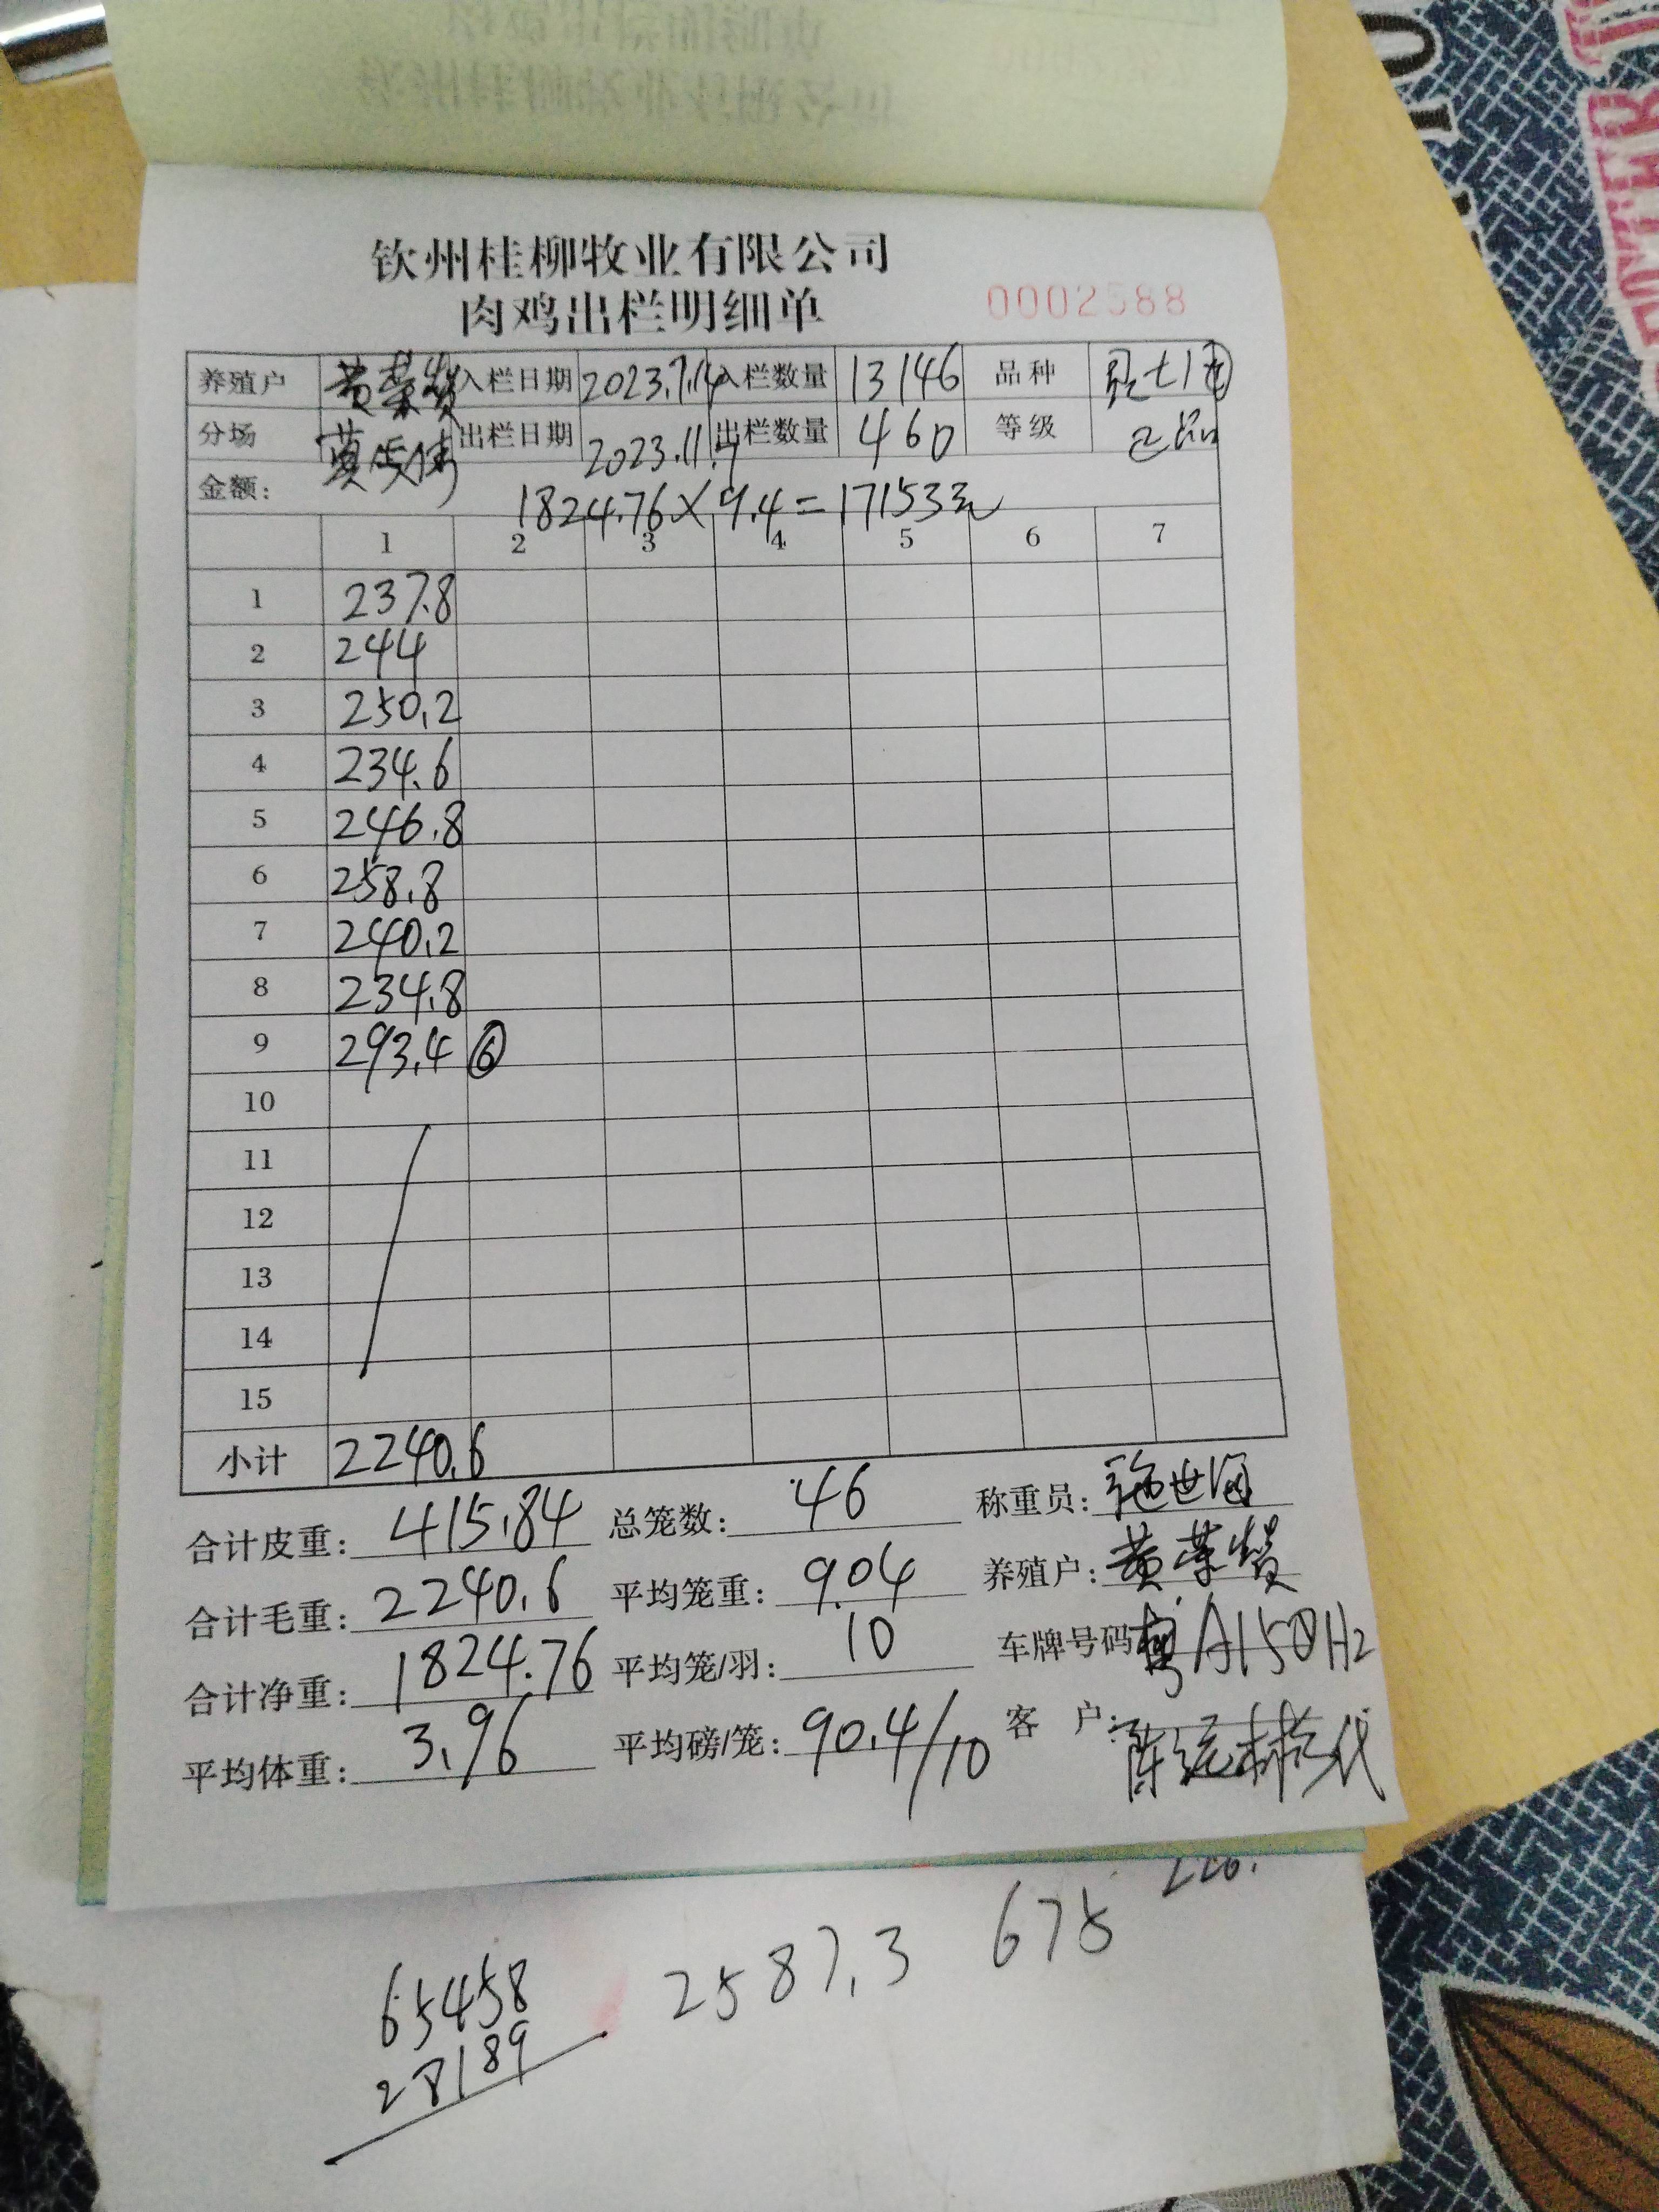 钦州桂柳牧业有限公司
肉鸡出栏明细单
0002588
养殖户 黄荣 入栏日期 2023.7.14 入栏数量 13146 品种
分场 出栏日期 2023.11.7 出栏数量 460 等级 正品
金额: 1824.76×9.4=17153元
1 2 3 4 5 6 7
1 237.8
2 244
3 250.2
4 234.6
5 246.8
6 258.8
7 240.2
8 234.8
9 293.4 ⑥
10
11
12
13
14
15
小计 2240.6
合计皮重: 415.84 总笼数: 46 称重员:
合计毛重: 2240.6 平均笼重: 9.04 养殖户: 黄荣
合计净重: 1824.76 平均笼/羽: 10 车牌号码
平均体重: 3.96 平均磅/笼: 90.4/10 客 户:
65458 2587.3 675
28189